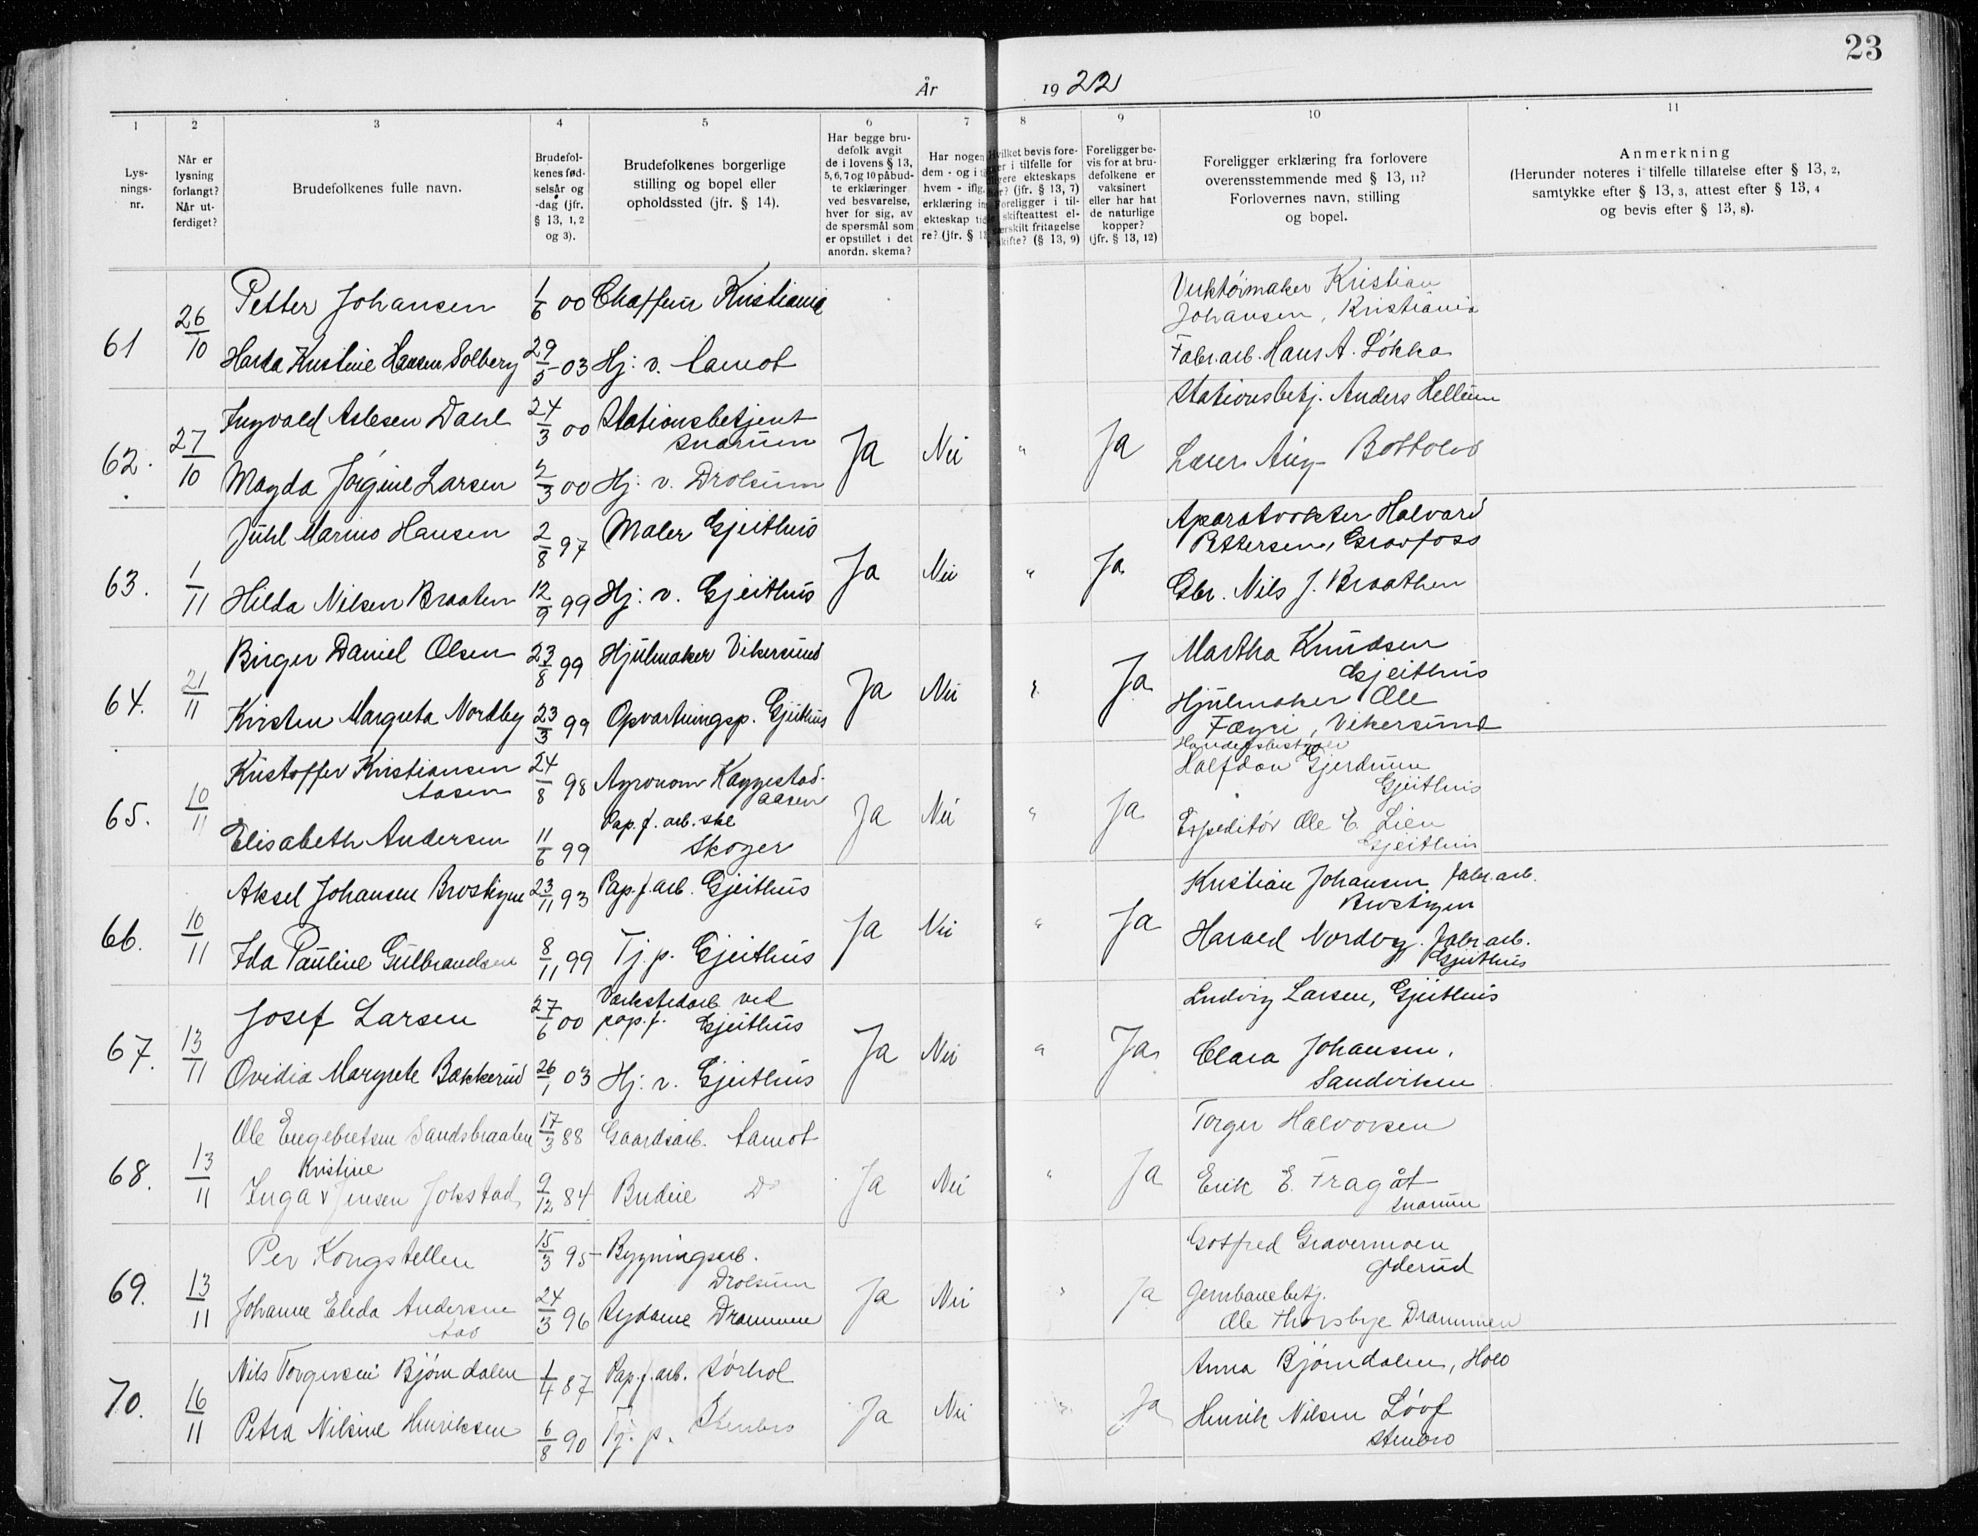 23
År 1922
1 2 3 4 5 6 7 8 9 10 11
Lys-
nings-
nr.
Når er
lysning
forlangt?
Når ut-
ferdiget?
Brudefolkenes fulle navn.
Brudefol-
kenes fød-
selsår og
-dag (jfr.
§ 13, 1, 2
og 3).
Brudefolkenes borgerlige
stilling og bopel eller
opholdssted (jfr. § 14).
Har begge bru-
defolk avgit
de i lovens § 13,
5, 6, 7 og 10 påbud-
te erklæringer
ved besvarelse,
hver for sig, av
de spørsmål som
er opstillet i det
anordn. skema?
Har nogen
dem - og i
hvem - iflg.
erklæring
ekteskap
re? (jfr. §
Hvilket bevis fore-
i tilfelle for
ekteskaps
(jfr. § 13, 7)
Foreligger i til-
skifteattest el-
fritagelse
skifte? (§ 13, 9)
Foreligger be-
vis for at bru-
defolkene er
vaksinert
eller har hat
de naturlige
kopper?
(jfr. § 13, 12)
Foreligger erklæring fra forlovere
overensstemmende med § 13, 11?
Forlovernes navn, stilling
og bopel.
Anmerkning
(Herunder noteres i tilfelle tillatelse efter § 13, 2,
samtykke efter § 13, 3, attest efter § 13, 4
og bevis efter § 13, 8).
61 26/10 Petter Johansen 1/6 00 Chaffeur Kristiania
Verktøimaker Kristian
Johansen, Kristiania
Kristine Hansen Solberg 29/5 03 Hj. v. Aamot
Fabr.arb. Hans A. Løkka
62. 27/10 Ingvald Aslesen Dahl 24/3 00 Stationsbetjent
Snarum
Ja Nei " Ja
Stationsbetj. Anders Hellum
Magda Jørgine Larsen 2/3 00 Hj. v. Drolsum
Lærer Aug.
63. 1/11 Juhl Marius Hansen 2/8 97 Maler Gjeithus
Ja Nei " Ja
Aparatvokter Halvard
Pettersen, Gravfoss
Hilda Nilsen Braaten 12/9 99 Hj. v. Gjeithus
Gbr. Nils J. Braathen
64. 21/11 Birger Daniel Olsen 23/8 99 Hjulmaker Vikersund
Ja Nei " Ja
Martha Knudsen
Gjeithus
Kirsten Margreta Nordby 23/3 99 Opvartningsp. Gjeithus
Hjulmaker Ole
Fægri, Vikersund
65. 10/11 Kristoffer Kristiansen
Aasen
24/8 98 Agronom Kaggestad-
aasen
Ja Nei " Ja
Handelsbestyrer
Halfdan Gjerdrum
Gjeithus
Elisabeth Andersen 11/6 99 Pap.f. arb.ske
Skoger
Expeditør Ole E. Lien
Gjeithus
66. 10/11 Aksel Johansen Brostigen 23/11 93 Pap.f.arb. Gjeithus
Ja Nei " Ja
Kristian Johansen, fabr.arb.
Brostigen
Ida Pauline Gulbrandsen 8/11 99 Tj. p. Gjeithus
Harald Nordby. Fabr.arb.
Gjeithus
67. 13/11 Josef Larsen 27/6 00 Værkstedarb. ved
pap.f. Gjeithus
Ja Nei " Ja
Ludvig Larsen, Gjeithus
Ovidia Margrete Bakkerud 26/1 03 Hj. v. Gjeithus
Clara Johansen,
Sandviken
68. 13/11 Ole Engebretsen Sandsbraaten 17/3 88 Gaardsarb. Aamot
Ja Nei " Ja
Torger Halvorsen
Kristine
Inga v Jensen Jokstad 9/12 84 Budeie Do
Erik E. Fragåt
Snarum
69. 13/11 Per Kongstellen 15/3 95 Bygningsarb.
Drolsum
Ja Nei " Ja
Gotfred Gravermoen
Øderud
Johanne Elida Andersen
Aas
24/3 96 Sydame Drammen
Jernbanebetj.
Ole Thorsbye Drammen
70. 16/11 Nils Torgersen Bjørndalen 1/4 87 Pap.f.arb. Sørhol
Ja Nei " Ja
Anna Bjørndalen, Hole
Petra Nilsine Henriksen 6/8 90 Tj. p. Stenbro
Henrik Nilsen Løvf
Stenbro